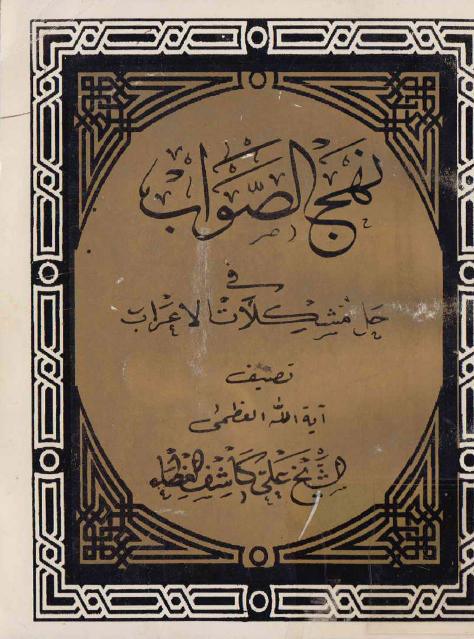 نهج الصواب
في
حل مشكلات الاعراب
تصنيف
آية الله العظمى
الشيخ علي كاشف الغطاء